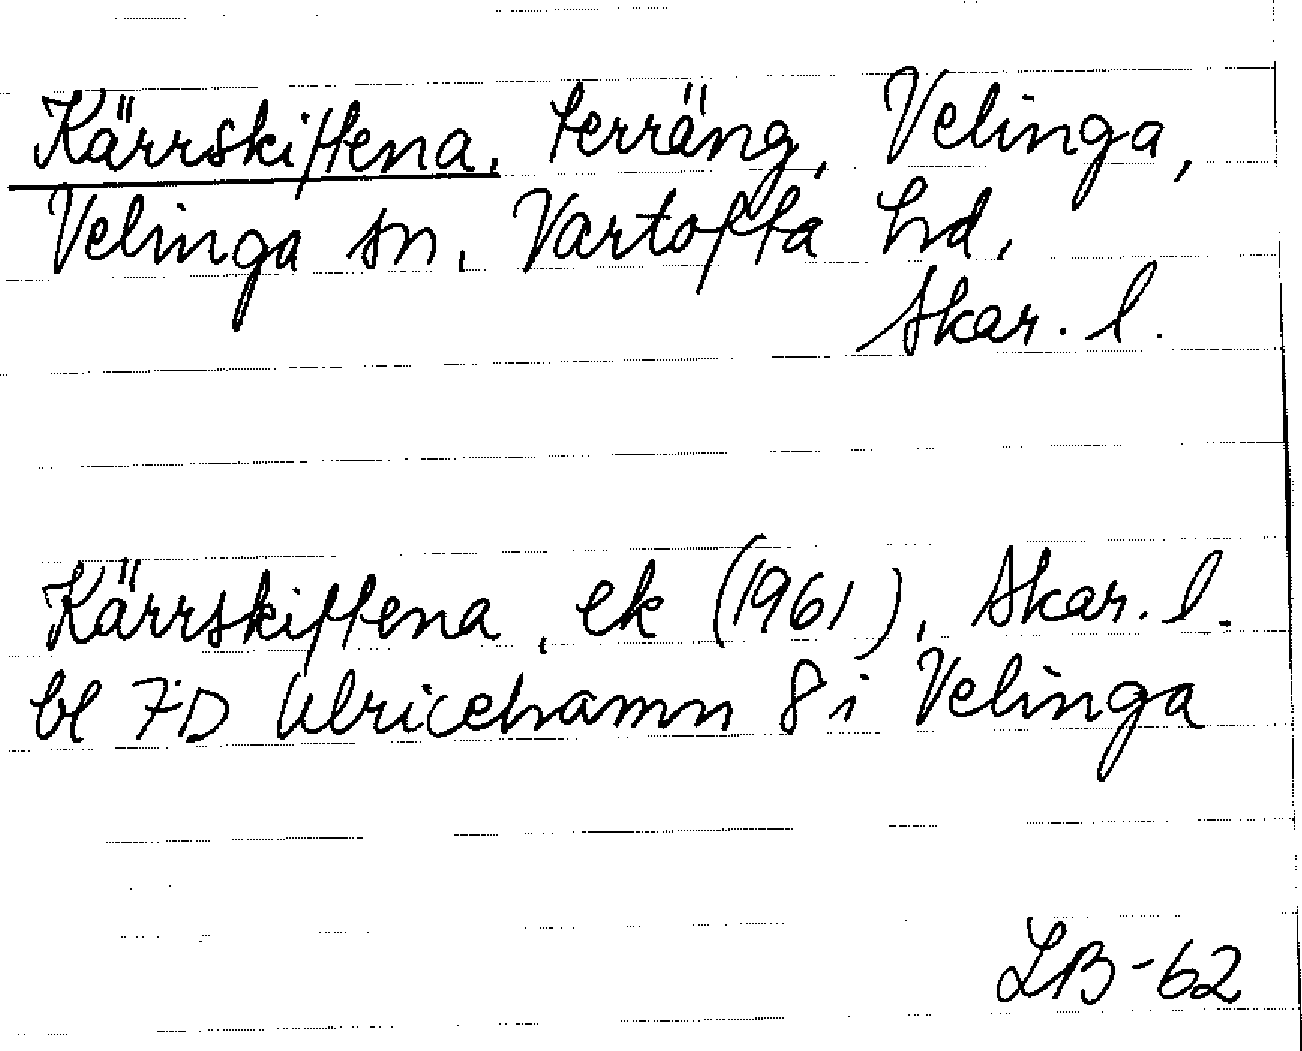 Kärrskiftena, terräng, Velinga,
Velinga sn, Vartofta hd,
Skar. l.
Kärrskiftena, ek (1961), Skar. l.
bl 7D Ulricehamn 8 i Velinga
LB-62